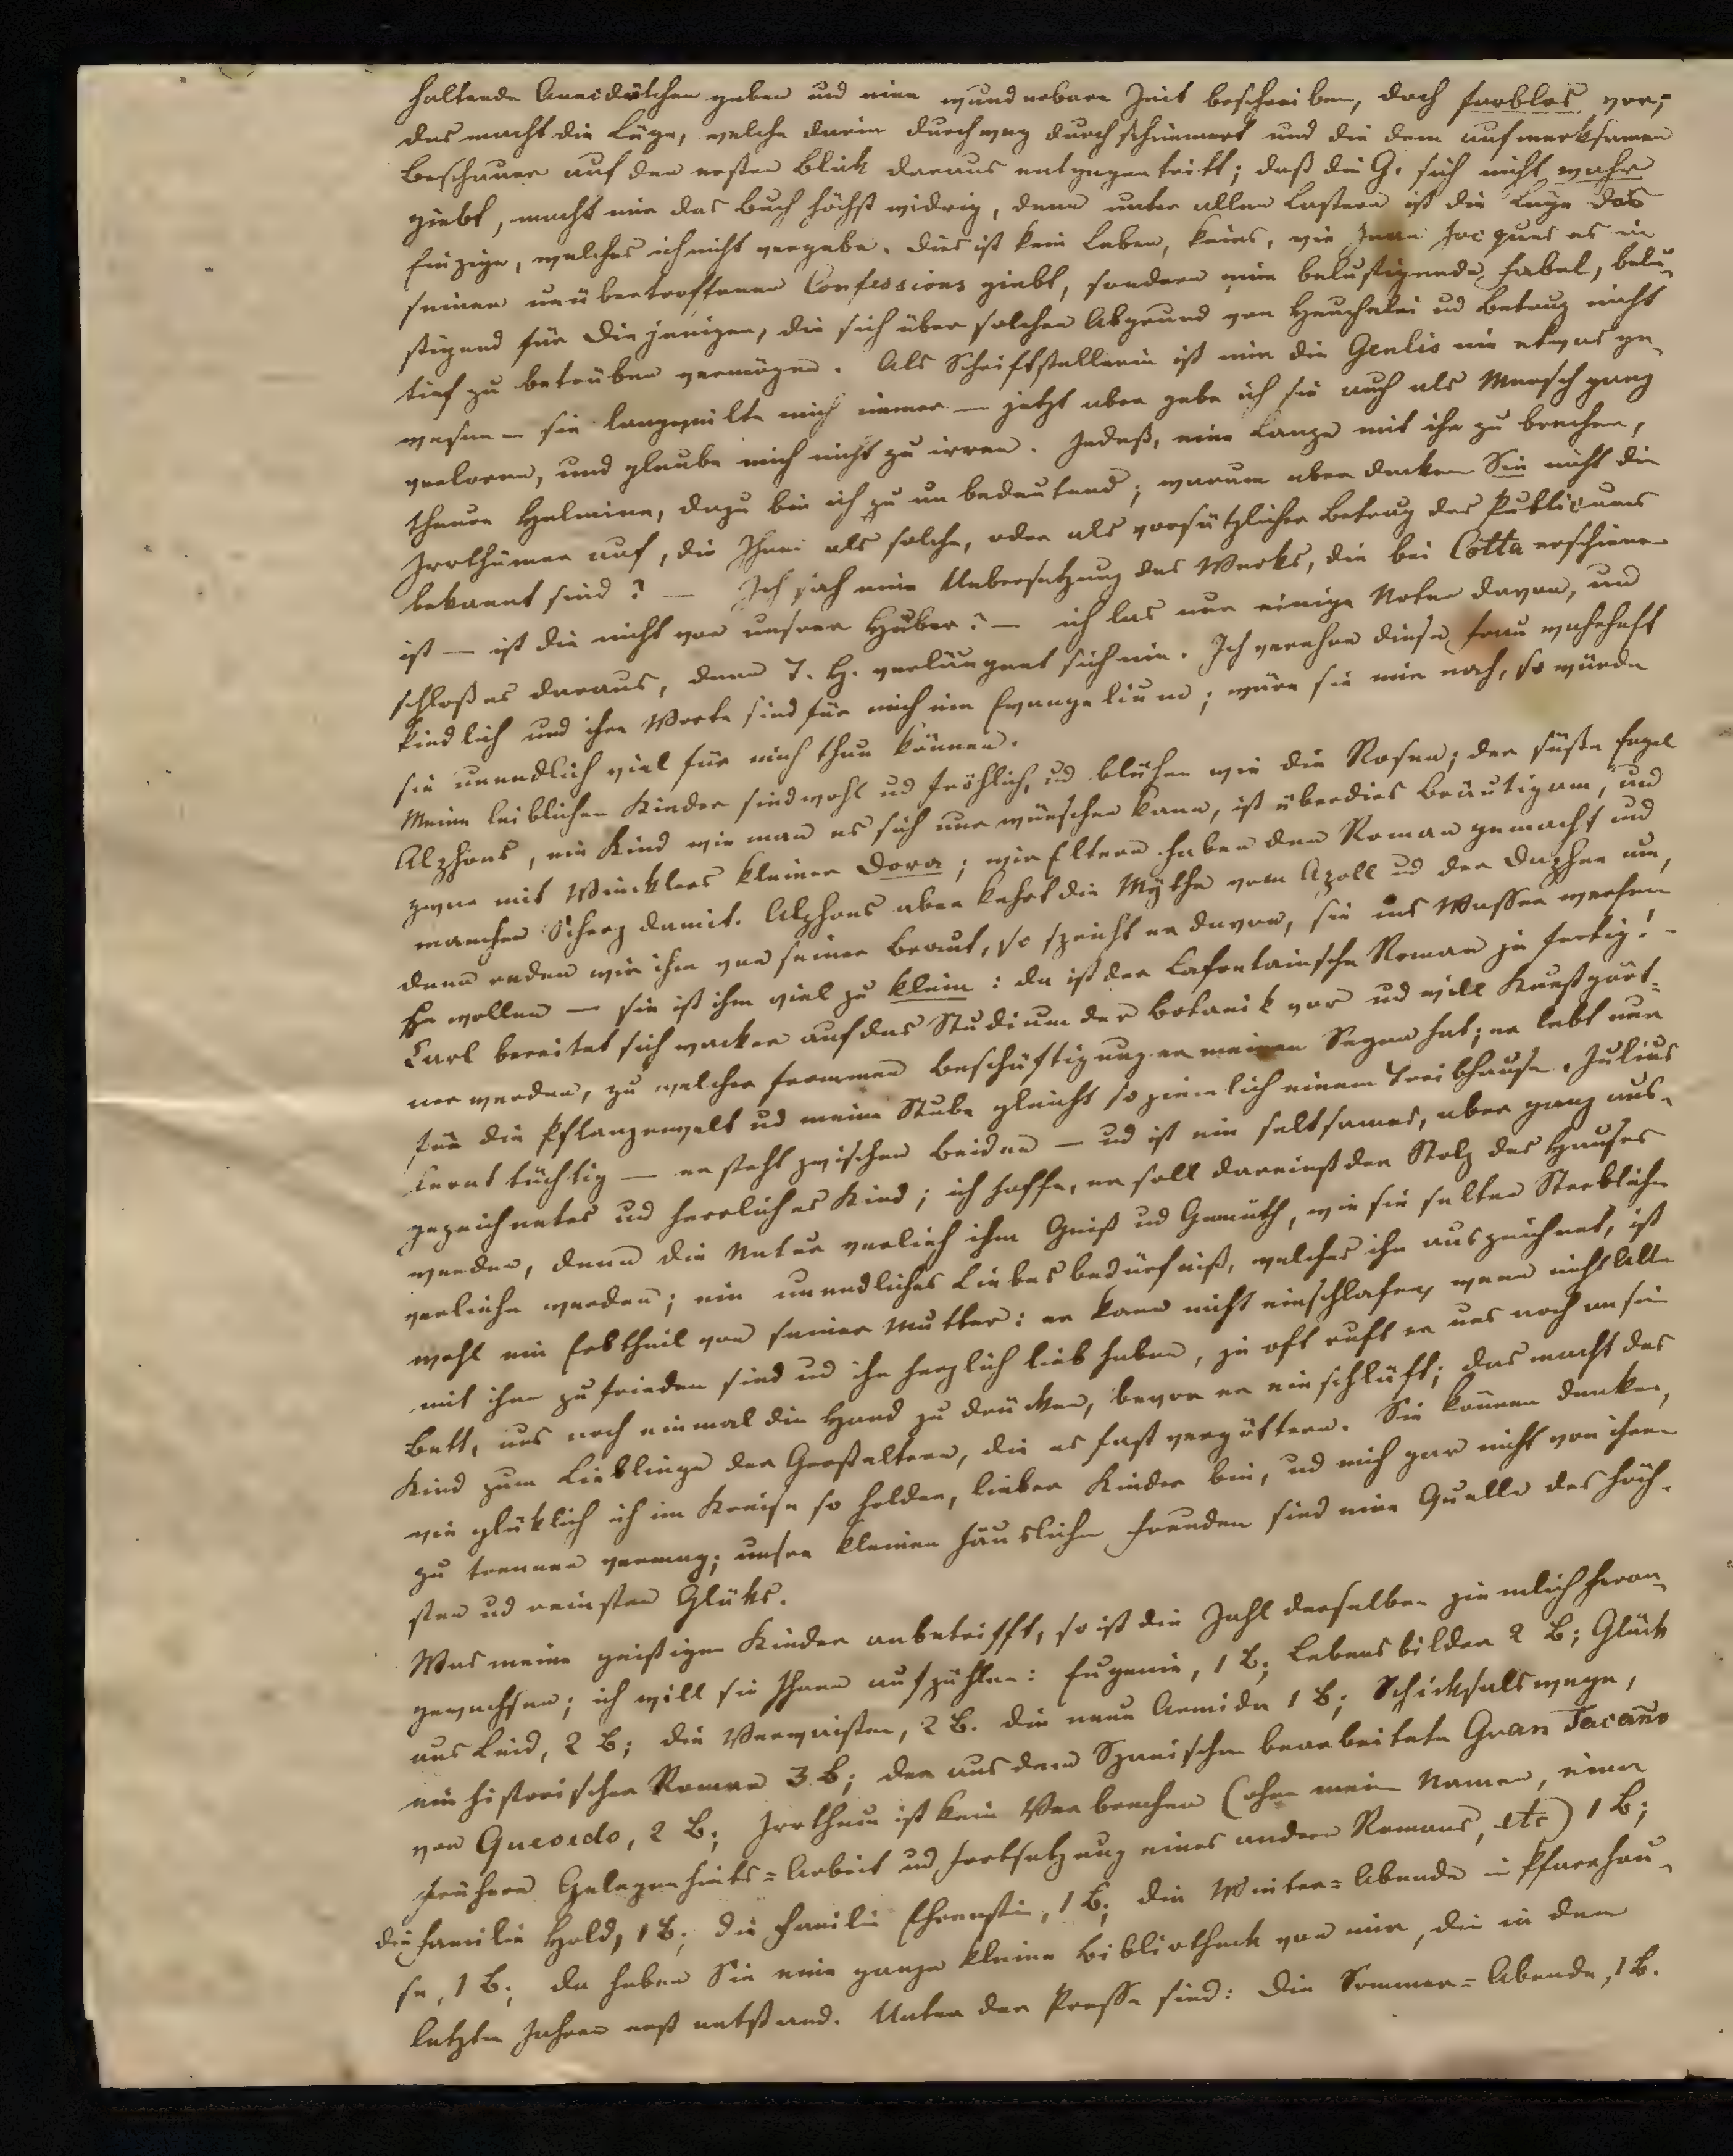 haltende Anecdötchen geben und eine wunderbare Zeit beschreiben, doch farblos vor;
das macht die Lüge, welche darin durchweg durchschimmert und die dem aufmerksamen
Beschauer auf den ersten Blick daraus entgegentritt; daß die G. sich nicht wahr
giebt, macht mir das Buch höchst widrig, denn unter allen Lastern ist die Lüge das
Einzige, welches ich nicht vergebe. Dies ist kein Leben, keins, wie Jean Jacques es in
seinen unübertroffenen Confessions giebt, sondern eine belustigende Fabel, belu-
stigend für Diejenigen, die sich über solchen Abgrund von Heuchelei ud Betrug nicht
tief zu betrüben vermögen. Als Schriftstellerin ist mir die Genlis nie etwas ge-
wesen – sie langweilte mich immer — jetzt aber gebe ich sie auch als Mensch ganz
verloren, und glaube mich nicht zu irren. Indeß, eine Lanze mit ihr zu brechen,
theure Helmina, dazu bin ich zu unbedeutend; warum aber decken Sie nicht die
Irrthümer auf, die Ihnen als solche, oder als vorsätzlicher Betrug des Publicums
bekannt sind? — Ich sah eine Uebersetzung des Werks, die bei Cotta erschienen
ist — ist die nicht von unsrer Huber? — ich las nur einige Noten davon, und
schloß es daraus, denn T. H. verläugnet sich nie. Ich verehre diese Frau wahrhaft
kindlich und ihre Worte sind für mich ein Evangelium; wäre sie mir nah, so würde
sie unendlich viel für mich thun können.
Meine leiblichen Kinder sind wohl ud fröhlich, ud blühen wie die Rosen; der süße Engel
Alphons, ein Kind wie man es sich nur wünschen kann, ist überdies Bräutigam, und
zwar mit Wincklers kleiner Dora; wir Eltern haben den Roman gemacht und
manchen Scherz damit. Alphons aber kehrt die Mythe vom Apoll ud der Daphne um,
denn reden wir ihm von seiner Braut, so spricht er davon, sie ins Wasser werfen
zu wollen — sie ist ihm viel zu klein: da ist der Lafontainsche Roman ja fertig! –
Carl bereitet sich wacker auf das Studium der Botanik vor ud will Kunstgärt-
ner werden, zu welcher frommen Beschäftigung er meinen Segen hat; er lebt nur
für die Pflanzenwelt ud meine Stube gleicht so ziemlich einem Treibhause. Julius
lernt tüchtig — er steht zwischen Beiden — ud ist ein seltsames, aber ganz aus-
gezeichnetes ud herrliches Kind; ich hoffe, er soll dereinst der Stolz des Hauses
werden, denn die Natur verlieh ihm Geist ud Gemüth, wie sie selten Sterblichen
verliehn werden; ein unendliches Liebesbedürfniß, welches ihn auszeichnet, ist
wohl ein Erbtheil von seiner Mutter: er kann nicht einschlafen, wenn nicht Alle
mit ihm zufrieden sind ud ihn herzlich lieb haben, ja oft ruft er uns noch an sein
Bett, uns noch einmal die Hand zu drücken, bevor er einschläft; das macht das
Kind zum Lieblinge der Großeltern, die es fast vergöttern. Sie können denken,
wie glüklich ich im Kreise so holder, lieber Kinder bin, ud mich gar nicht von ihnen
zu trennen vermag; unsre kleinen häuslichen Freuden sind eine Quelle des höch-
sten ud reinsten Glüks.
Was meine geistigen Kinder anbetrifft, so ist die Zahl derselben ziemlich heran-
gewachsen; ich will sie Ihnen aufzählen: Eugenie, 1 B; Lebensbilder 2 B; Glück
aus Leid, 2 B; die Verwaisten, 2 B. die neue Armida 1 B; Schicksalswege,
ein historischer Roman 3 B; der aus dem Spanischen bearbeitete Gran Tacaño
von Quevedo, 2 B; Irrthum ist kein Verbrechen (ohne meinen Namen, eine
frühere Gelegenheits=Arbeit ud Fortsetzung eines andern Romans, etc) 1 B;
die Familie Hold, 1 B; die Familie Ehrenstein, 1 B; die Winter=Abende in Pfarrhau-
se, 1 B; da haben Sie eine ganze kleine Bibliotheck von mir, die in den
letzten Jahren erst entstand. Unter der Presse sind: die Sommer=Abende, 1 B.